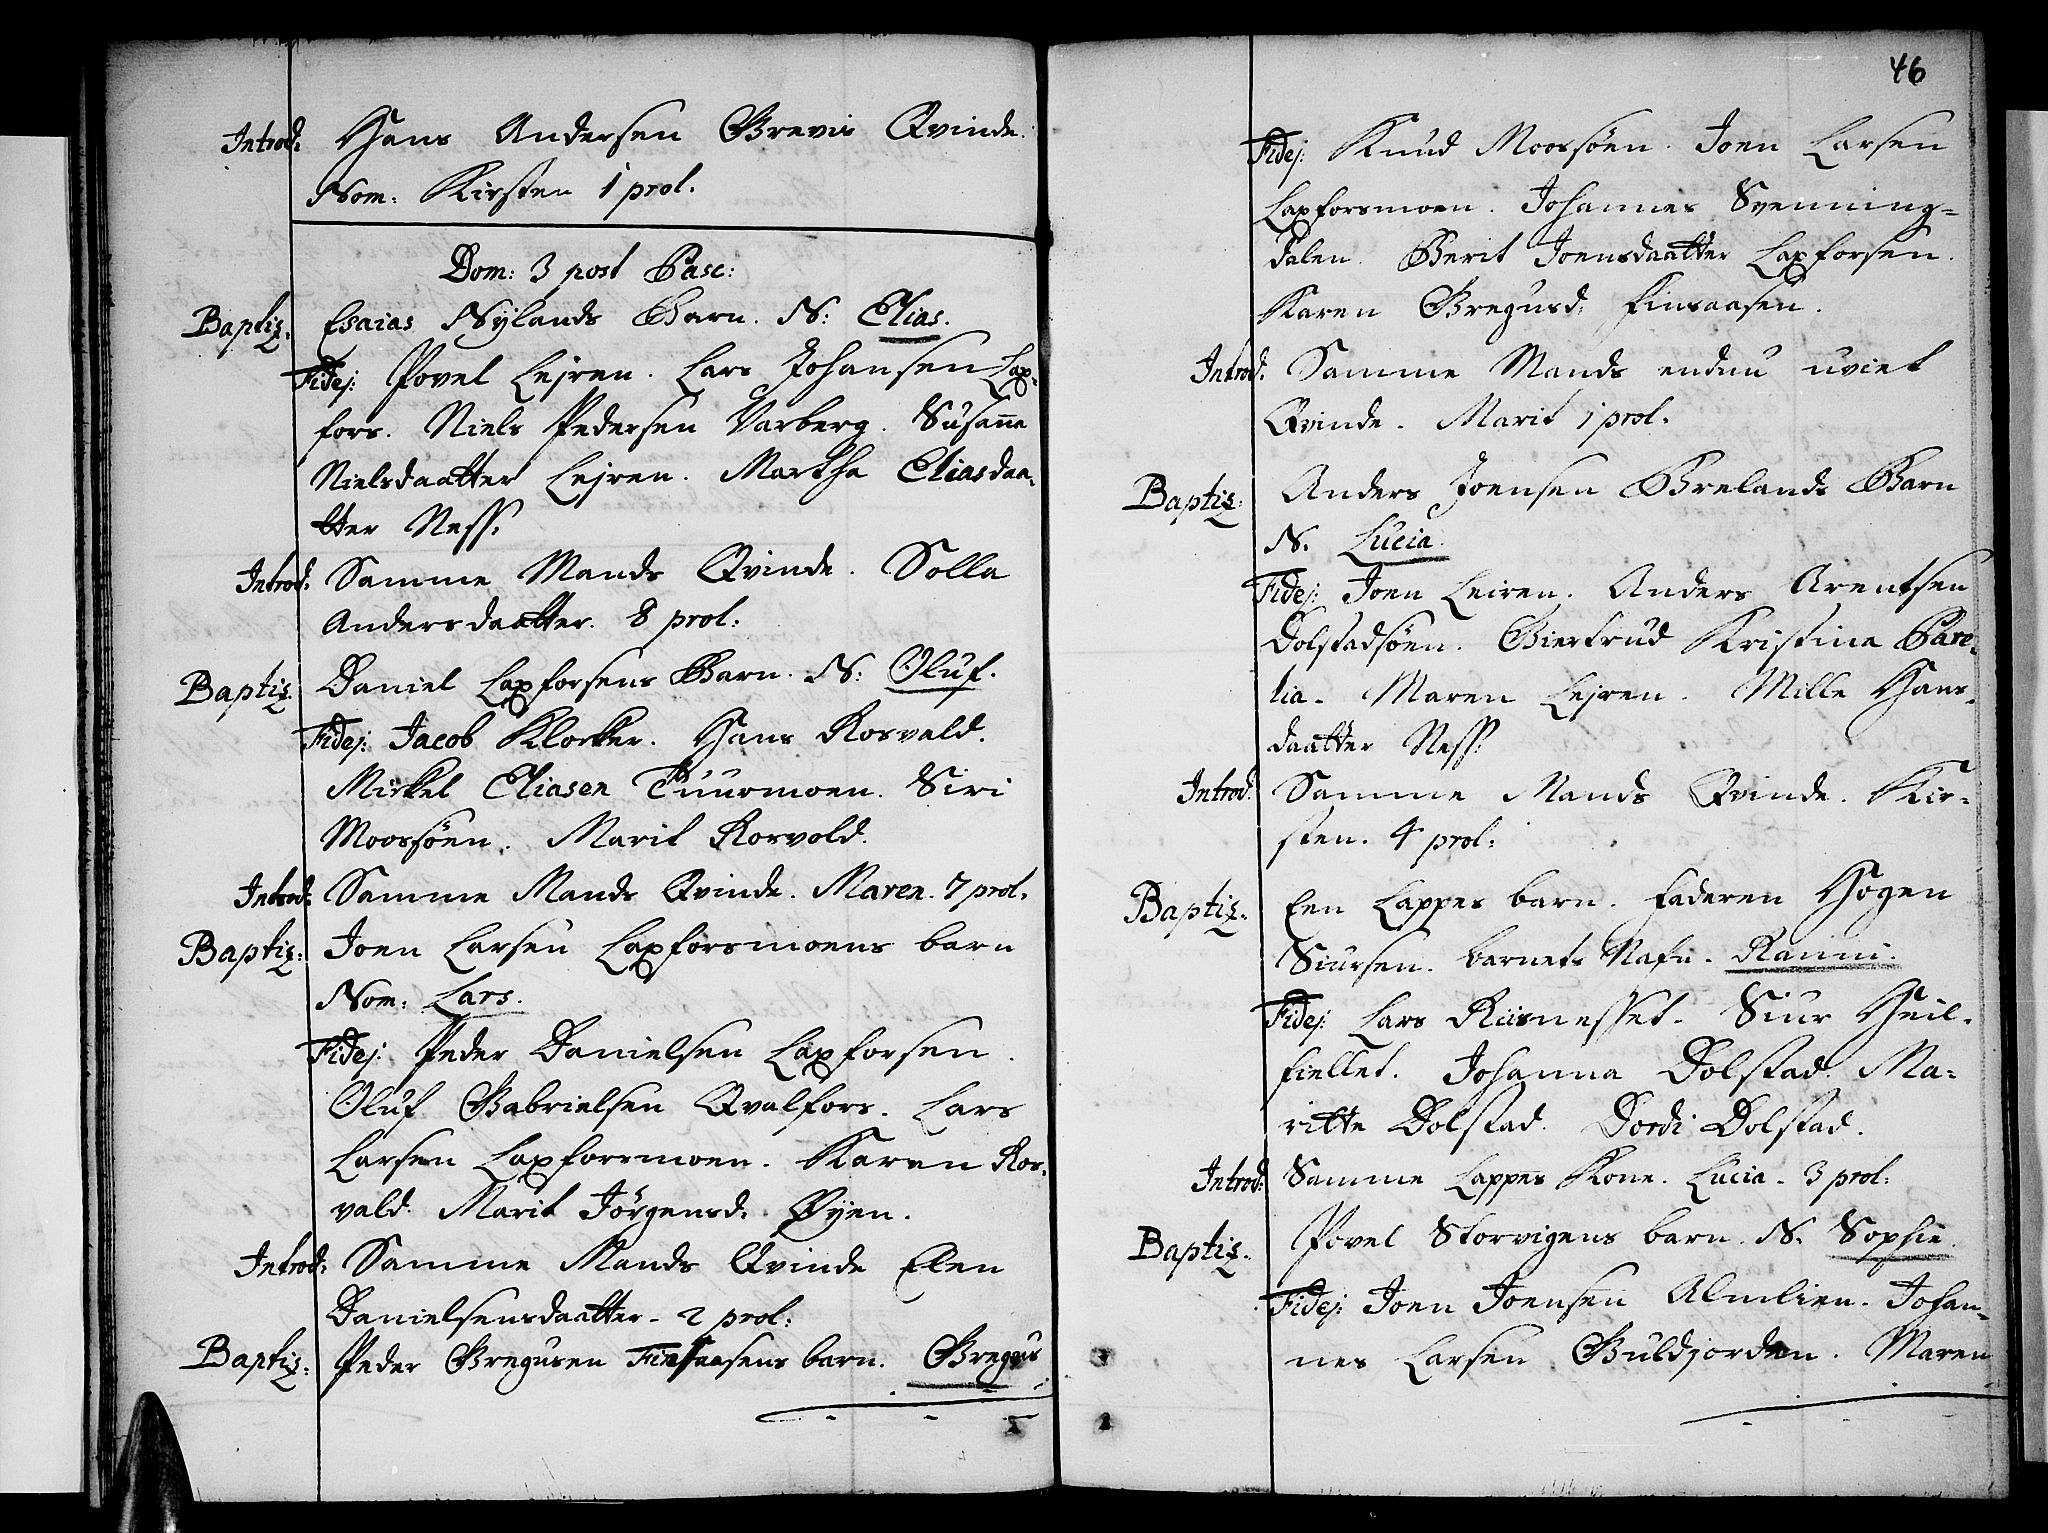 Introd: Hans Andersen Brevis Qvinde.
Nom: Kirsten 1 prol.
Dom: 3 post Pasc:
Baptiz. Esaias Nÿlands Barn. N: Elias.
Fidej: Povel Lejren. Lars Johansen Lax-
fors. Niels Pedersen Varberg. Susan̄a
Nielsdaatter Lejren. Martha Eliasdaa-
tter Ness.
Introd: Samme Mands Qvinde. Solla
Andersdaatter. 8 prol:
Baptiz. Daniel Laxforsens Barn. N: Oluf.
Fidej: Jacob Klocker. Hans Rosvald.
Mickel Eliasen Tuurmoen. Siri
Moossöen. Marit Rosvold.
Introd: Samme Mands Qvinde. Maren. 7 prol.
Baptiz: Joen Larsen Laxforsmoens barn
Nom: Lars.
Fidej: Peder Danielsen Laxforsen.
Oluf Gabrielsen Qvalfors. Lars
Larsen Laxforsmoen. Karen Ros-
vald. Marit Jörgensd: Øyen.
Introd: Samme Mands Qvinde Elen
Danielsensdaatter. 2 prol:
Baptiz: Peder Gregusen Finsaasens barn. Gregus
46
Fidej: Knud Moossöen. Joen Larsen
Laxforsmoen. Johannes Svenning-
dalen. Berit Joensdaatter Laxforsen.
Karen Gregusd: Finsaasen.
Introd: Samme Mands enduu uviet
Qvinde. Marit 1 prol.
Baptiz: Anders Joensen Brelands Barn
N. Lucia.
Fidej: Joen Leiren. Anders Arentsen
Dolstadsöen. Giertrud Kristina Pare-
lia. Maren Lejren. Mille Hans-
daatter Ness:
Introd. Samme Mands Qvinde. Kir-
sten. 4 prol:
Baptiz. Een Lappes barn. Faderen Hogen
Siursen. barnets Nafn. Ranni.
Fidej: Lars Riisnesset. Siur Heil-
fiellet. Johanna Dolstad. Ma-
ritte Dolstad. Dordi Dolstad.
Introd: Samme Lappes Kone. Lucia. 3 prol:
Baptiz. Povel Storvigens barn. N. Sophie.
Fidej: Joen Joensen Almlien. Johan-
nes Larsen Guldjorden. Maren